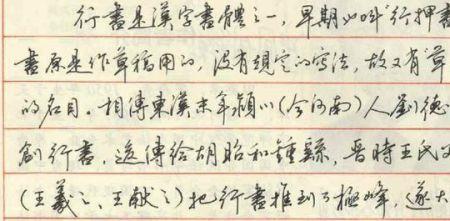 行書是漢字書體之一，早期也叫“行押書
書原是作草稿用的，没有規定的寫法，故又有“草
的名目。相傳東漢末年潁川（今河南）人劉德
創行書，遂傳給胡昭和鍾繇，晋時王氏父
（王羲之、王献之）把行書推到了極峰，遂大